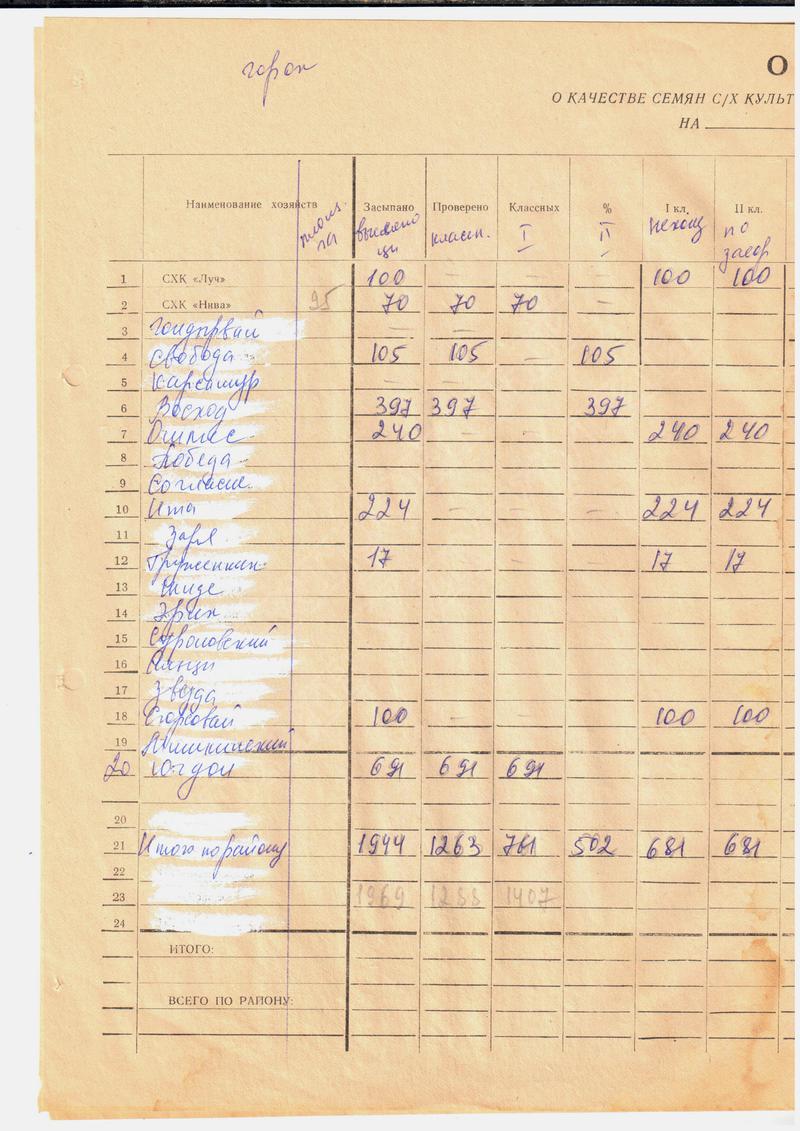 горох
О
О КАЧЕСТВЕ СЕМЯН С/Х КУЛЬТ
НА
Наименование хозяйств Засыпано Проверено Классных % I кл. II кл.
классн. I II по
1 СХК «Луч» 100 — — 100 100
2 СХК «Нива» 95 70 70 70 —
3 Гондырвай — —
4 Свобода 105 105 — 105
5 — —
6 Восход 397 397 397
7 240 - - 240 240
8 Победа
9 Согласие
10 Ита 224 — — — 224 224
11 Заря
12 Труженик 17 — 17 17
13
14
15
16
17 Звезда
18 100 — — 100 100
19
20 691 691 691
20
21 Итого по району 1944 1263 761 502 681 681
22
23 1969 1288 1407
24
ИТОГО:
ВСЕГО ПО РАЙОНУ: